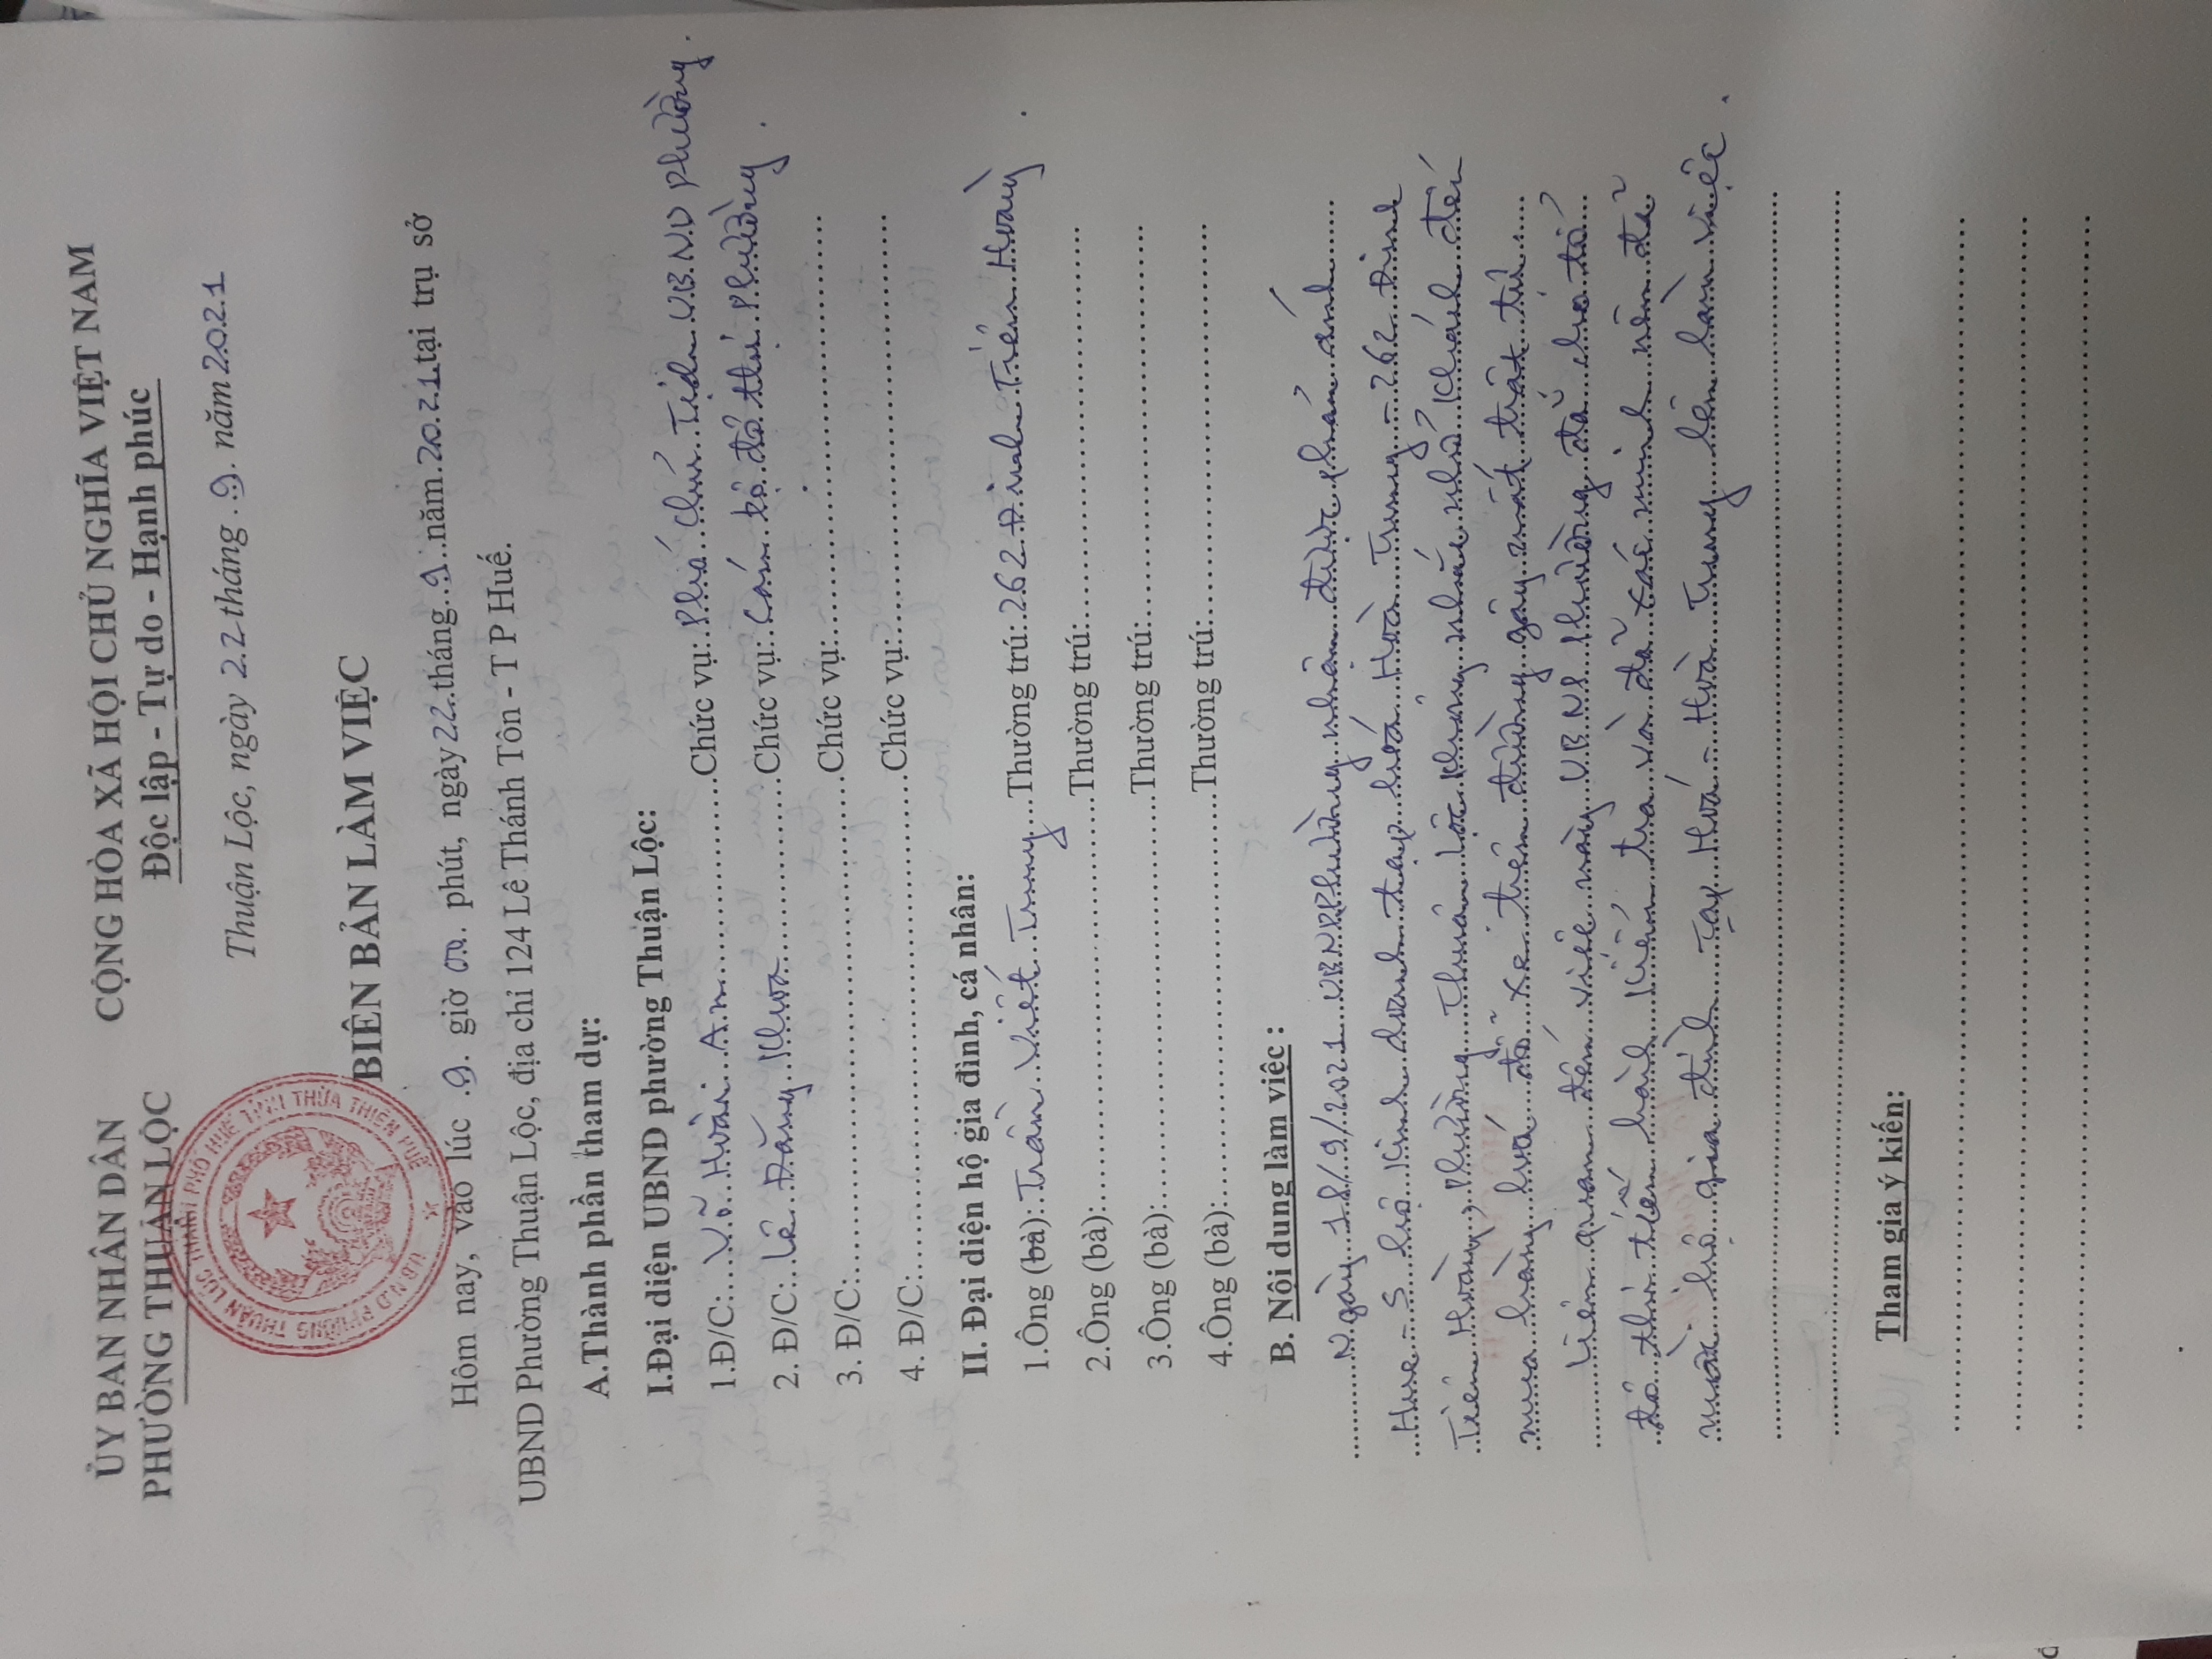 ỦY BAN NHÂN DÂN CỘNG HÒA XÃ HỘI CHỦ NGHĨA VIỆT NAM
PHƯỜNG THUẬN LỘC Độc lập - Tự do - Hạnh phúc
Thuận Lộc, ngày 22 tháng 9 năm 2021
U.B.N.D PHƯỜNG THUẬN LỘC THÀNH PHỐ HUẾ TỈNH THỪA THIÊN HUẾ
BIÊN BẢN LÀM VIỆC
Hôm nay, vào lúc 9 giờ 00 phút, ngày 22 tháng 9 năm 2021 tại trụ sở
UBND Phường Thuận Lộc, địa chỉ 124 Lê Thánh Tôn - T P Huế.
A.Thành phần tham dự:
I.Đại diện UBND phường Thuận Lộc:
1.Đ/C: Võ Hoài An Chức vụ: Phó Chủ Tịch U.B.N.D phường.
2. Đ/C: Lê Đăng Khoa Chức vụ: Cán bộ đô thị phường.
3. Đ/C: Chức vụ:
4. Đ/C: Chức vụ:
II. Đại diện hộ gia đình, cá nhân:
1.Ông (bà): Trần Viết Trung Thường trú: 262 Đinh Tiên Hoàng.
2.Ông (bà): Thường trú:
3.Ông (bà): Thường trú:
4.Ông (bà): Thường trú:
B. Nội dung làm việc :
Ngày 18/9/2021 UBND phường nhận được phản ánh
Hue-S hộ kinh doanh tạp hoá Hoà Trung - 262 Đinh
Tiên Hoàng, phường Thuận Lộc không nhắc nhở khách đến
mua hàng hoá đỗ xe trên đường gây mất trật tự
Liên quan đến việc này UBND phường đã chỉ tổ
đô thị tiến hành kiểm tra và đã xác minh nên đã
mời hộ gia đình Tạp Hoá - Hoà Trung lên làm việc.
Tham gia ý kiến: